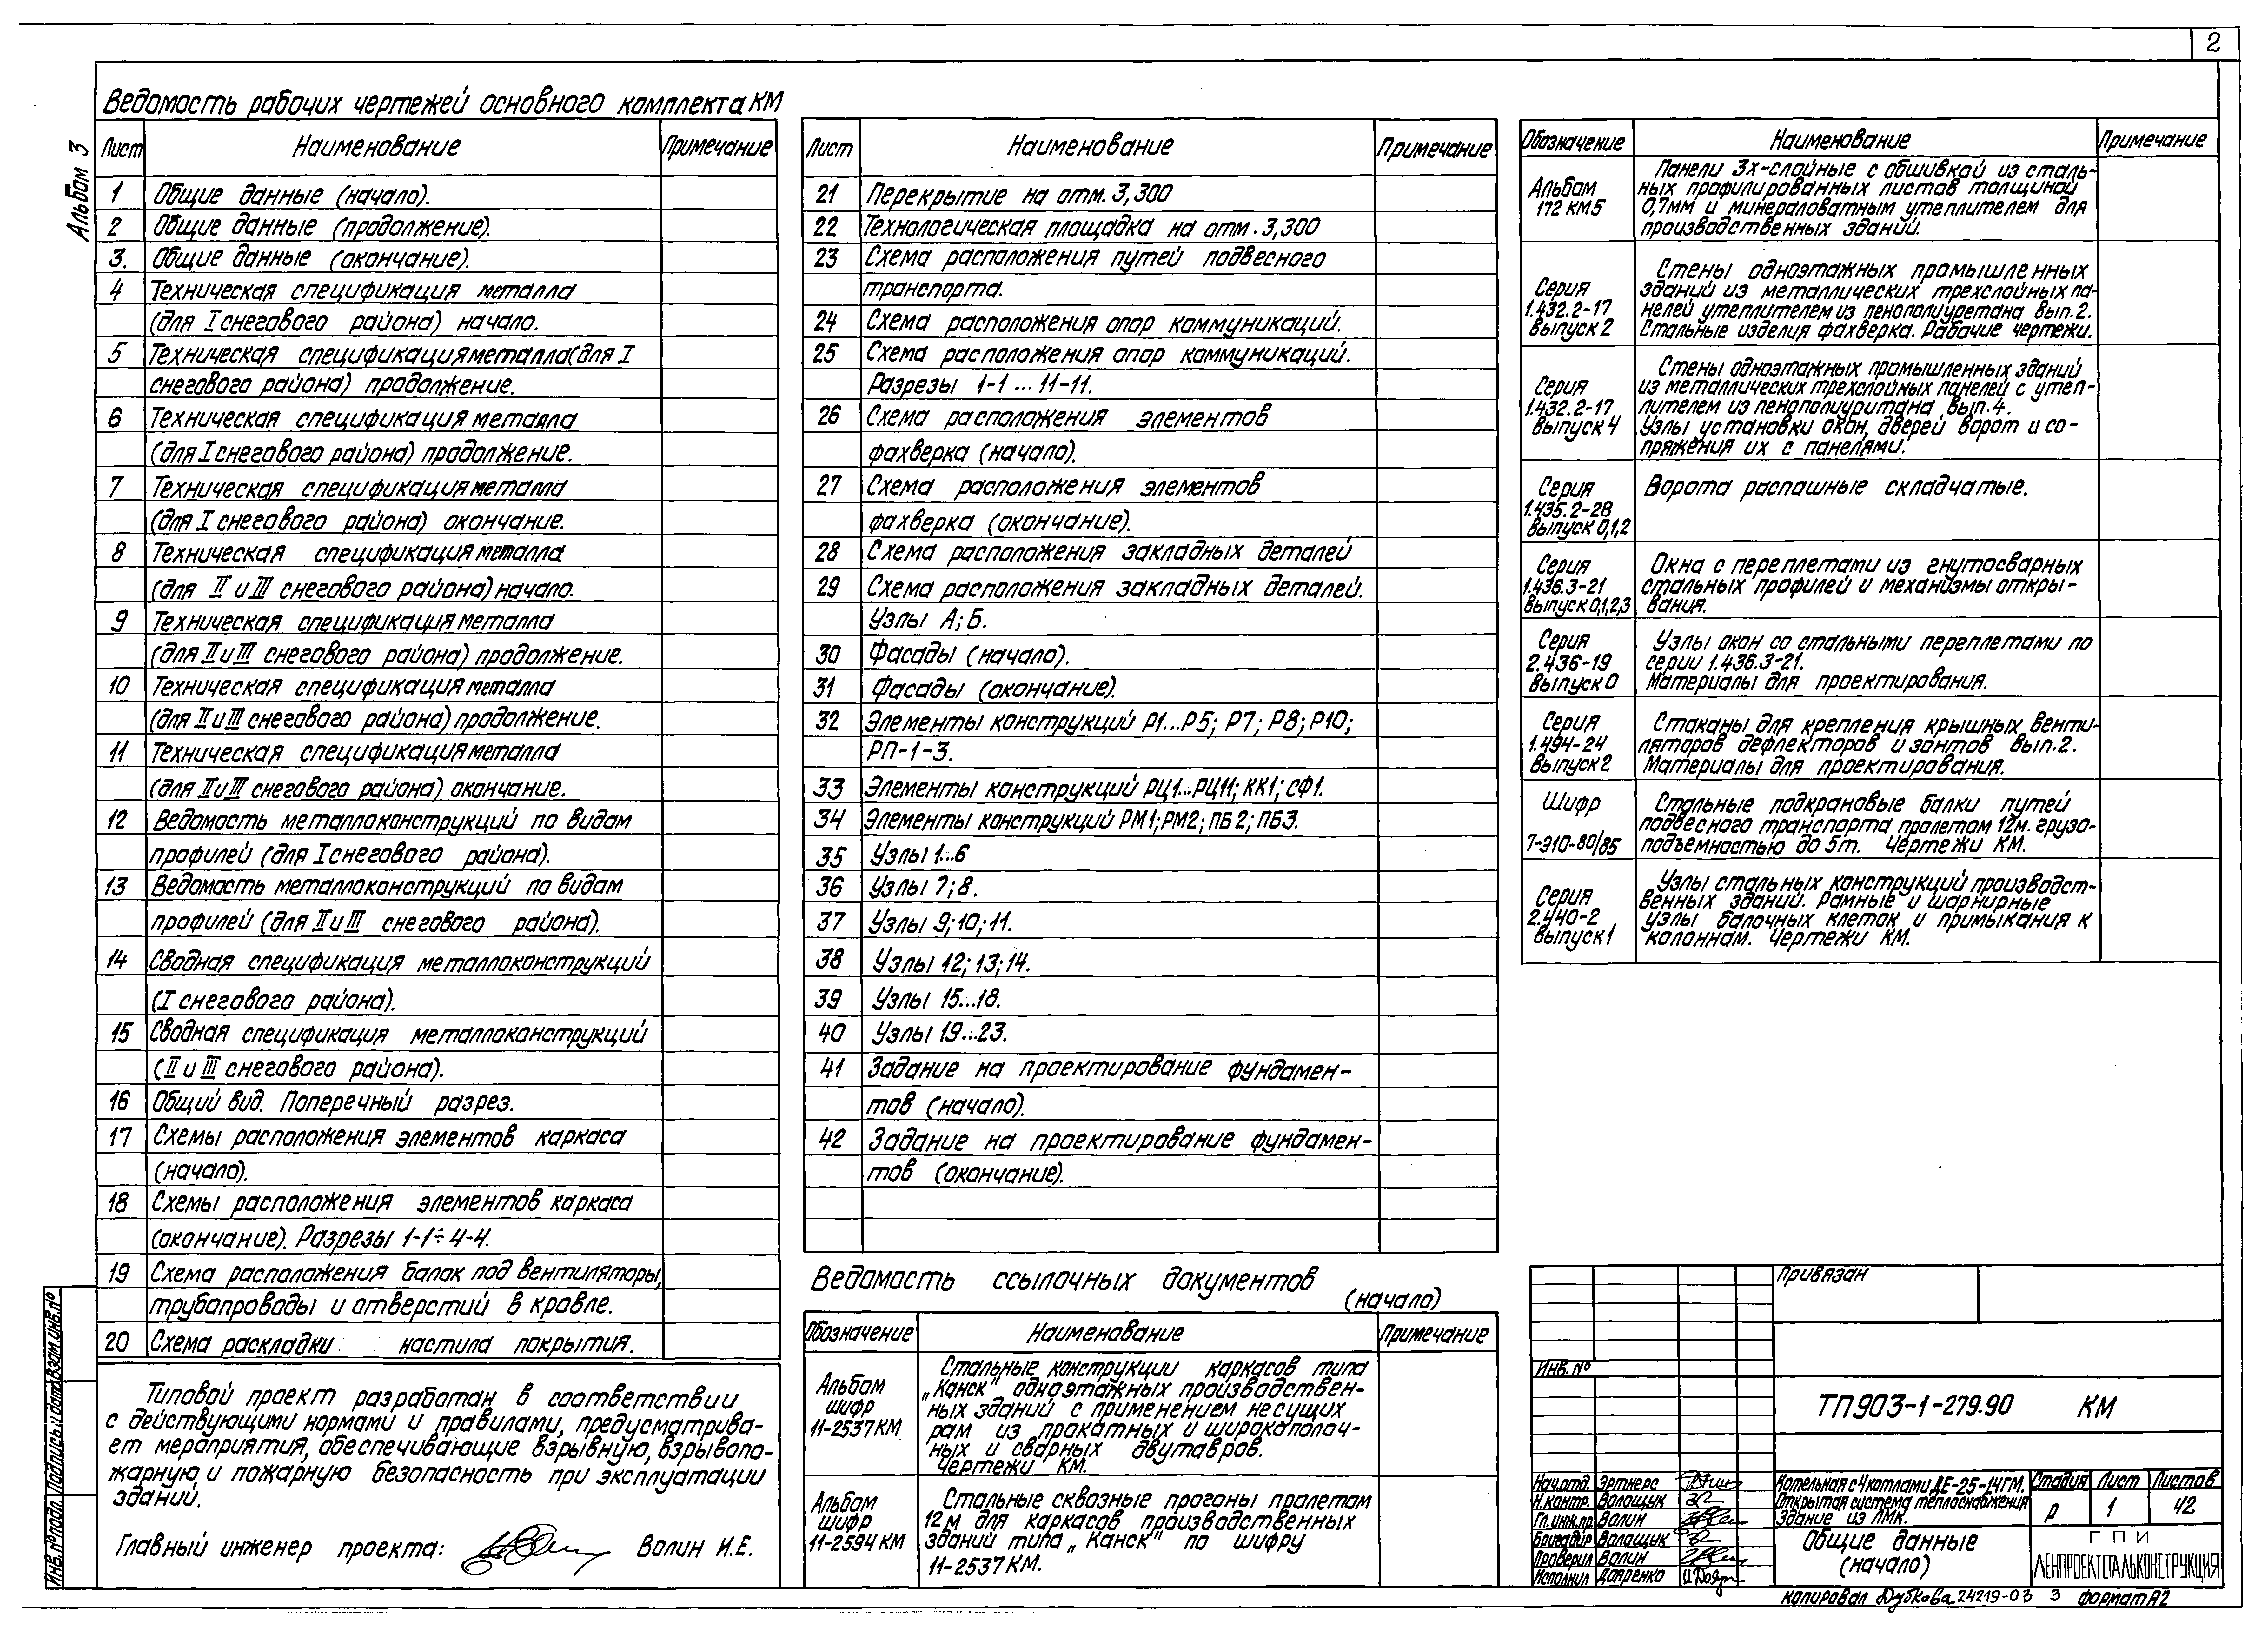 2
Альбом 3
Ведомость рабочих чертежей основного комплекта КМ
Лист Наименование Примечание
1 Общие данные (начало).
2 Общие данные (продолжение).
3. Общие данные (окончание).
4 Техническая спецификация металла
(для I снегового района) начало.
5 Техническая спецификация металла (для I
снегового района) продолжение.
6 Техническая спецификация металла
(для I снегового района) продолжение.
7 Техническая спецификация металла
(для I снегового района) окончание.
8 Техническая спецификация металла
(для II и III снегового района) начало.
9 Техническая спецификация металла
(для II и III снегового района) продолжение.
10 Техническая спецификация металла
(для II и III снегового района) продолжение.
11 Техническая спецификация металла
(для II и III снегового района) окончание.
12 Ведомость металлоконструкций по видам
профилей (для I снегового района).
13 Ведомость металлоконструкций по видам
профилей (для II и III снегового района).
14 Сводная спецификация металлоконструкций
(I снегового района).
15 Сводная спецификация металлоконструкций
(II и III снегового района).
16 Общий вид. Поперечный разрез.
17 Схемы расположения элементов каркаса
(начало).
18 Схемы расположения элементов каркаса
(окончание). Разрезы 1-1÷4-4.
19 Схема расположения балок под вентиляторы,
трубопроводы и отверстий в кровле.
20 Схема раскладки настила покрытия.
Типовой проект разработан в соответствии
с действующими нормами и правилами, предусматрива-
ет мероприятия, обеспечивающие взрывную, взрывопо-
жарную и пожарную безопасность при эксплуатации
зданий.
Главный инженер проекта: Волин И.Е.
Лист Наименование Примечание
21 Перекрытие на отм. 3,300
22 Технологическая площадка на отм. 3,300
23 Схема расположения путей подвесного
транспорта.
24 Схема расположения опор коммуникаций.
25 Схема расположения опор коммуникаций.
Разрезы 1-1...11-11.
26 Схема расположения элементов
фахверка (начало).
27 Схема расположения элементов
фахверка (окончание).
28 Схема расположения закладных деталей
29 Схема расположения закладных деталей.
Узлы А; Б.
30 Фасады (начало).
31 Фасады (окончание).
32 Элементы конструкций Р1...Р5; Р7; Р8; Р10;
РП-1-3.
33 Элементы конструкций РЦ1...РЦ11; КК1; СФ1.
34 Элементы конструкций РМ1; РМ2; ПБ2; ПБ3.
35 Узлы 1...6
36 Узлы 7; 8.
37 Узлы 9; 10; 11.
38 Узлы 12; 13; 14.
39 Узлы 15...18.
40 Узлы 19...23.
41 Задание на проектирование фундамен-
тов (начало).
42 Задание на проектирование фундамен-
тов (окончание).
Ведомость ссылочных документов
(начало)
Обозначение Наименование Примечание
Альбом шифр 11-2537 КМ
Стальные конструкции каркасов типа
„Канск" одноэтажных производствен-
ных зданий с применением несущих
рам из прокатных и широкополоч-
ных и сварных двутавров.
Чертежи КМ.
Альбом шифр 11-2594 КМ
Стальные сквозные прогоны пролетом
12 м для каркасов производственных
зданий типа „Канск" по шифру
11-2537 КМ.
Обозначение Наименование Примечание
Альбом 172 КМ5
Панели 3х-слойные с обшивкой из сталь-
ных профилированных листов толщиной
0,7мм и минераловатным утеплителем для
производственных зданий.
Серия 1.432.2-17 выпуск 2
Стены одноэтажных промышленных
зданий из металлических трехслойных па-
нелей утеплителем из пенополиуретана вып. 2.
Стальные изделия фахверка. Рабочие чертежи.
Серия 1.432.2-17 выпуск 4
Стены одноэтажных промышленных зданий
из металлических трехслойных панелей с утеп-
лителем из пенополиуритана вып. 4.
Узлы установки окон, дверей ворот и со-
пряжения их с панелями.
Серия 1.435.2-28 выпуск 0,1,2
Ворота распашные складчатые.
Серия 1.436.3-21 выпуск 0,1,2,3
Окна с переплетами из гнутосварных
стальных профилей и механизмы откры-
вания.
Серия 2.436-19 выпуск 0
Узлы окон со стальными переплетами по
серии 1.436.3-21.
Материалы для проектирования.
Серия 1.494-24 выпуск 2
Стаканы для крепления крышных венти-
ляторов дефлекторов и зонтов вып. 2.
Материалы для проектирования.
Шифр 7-Э10-80/85
Стальные подкрановые балки путей
подвесного транспорта пролетом 12м. грузо-
подъемностью до 5т. Чертежи КМ.
Серия 2.440-2 выпуск 1
Узлы стальных конструкций производст-
венных зданий. Рамные и шарнирные
узлы балочных клеток и примыкания к
колоннам. Чертежи КМ.
Привязан
Инв. №
ТП 903-1-279.90 КМ
Нач.отд. Эртнерс
Н.контр. Волощук
Гл.инж.пр. Волин
Бригадир Волощук
Проверил Волин
Исполнил Дояренко
Котельная с 4 котлами ДЕ-25-14ГМ.
Открытая система теплоснабжения
Здание из ЛМК.
Стадия Лист Листов
р 1 42
Общие данные
(начало)
ГПИ
ЛЕНПРОЕКТСТАЛЬКОНСТРУКЦИЯ
Копировал Дубкова 24219-03 3 формат А2
Инв. № подл. Подпись и дата Взам. инв. №